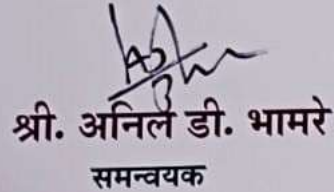 श्री. अनिल डी. भामरे
समन्वयक